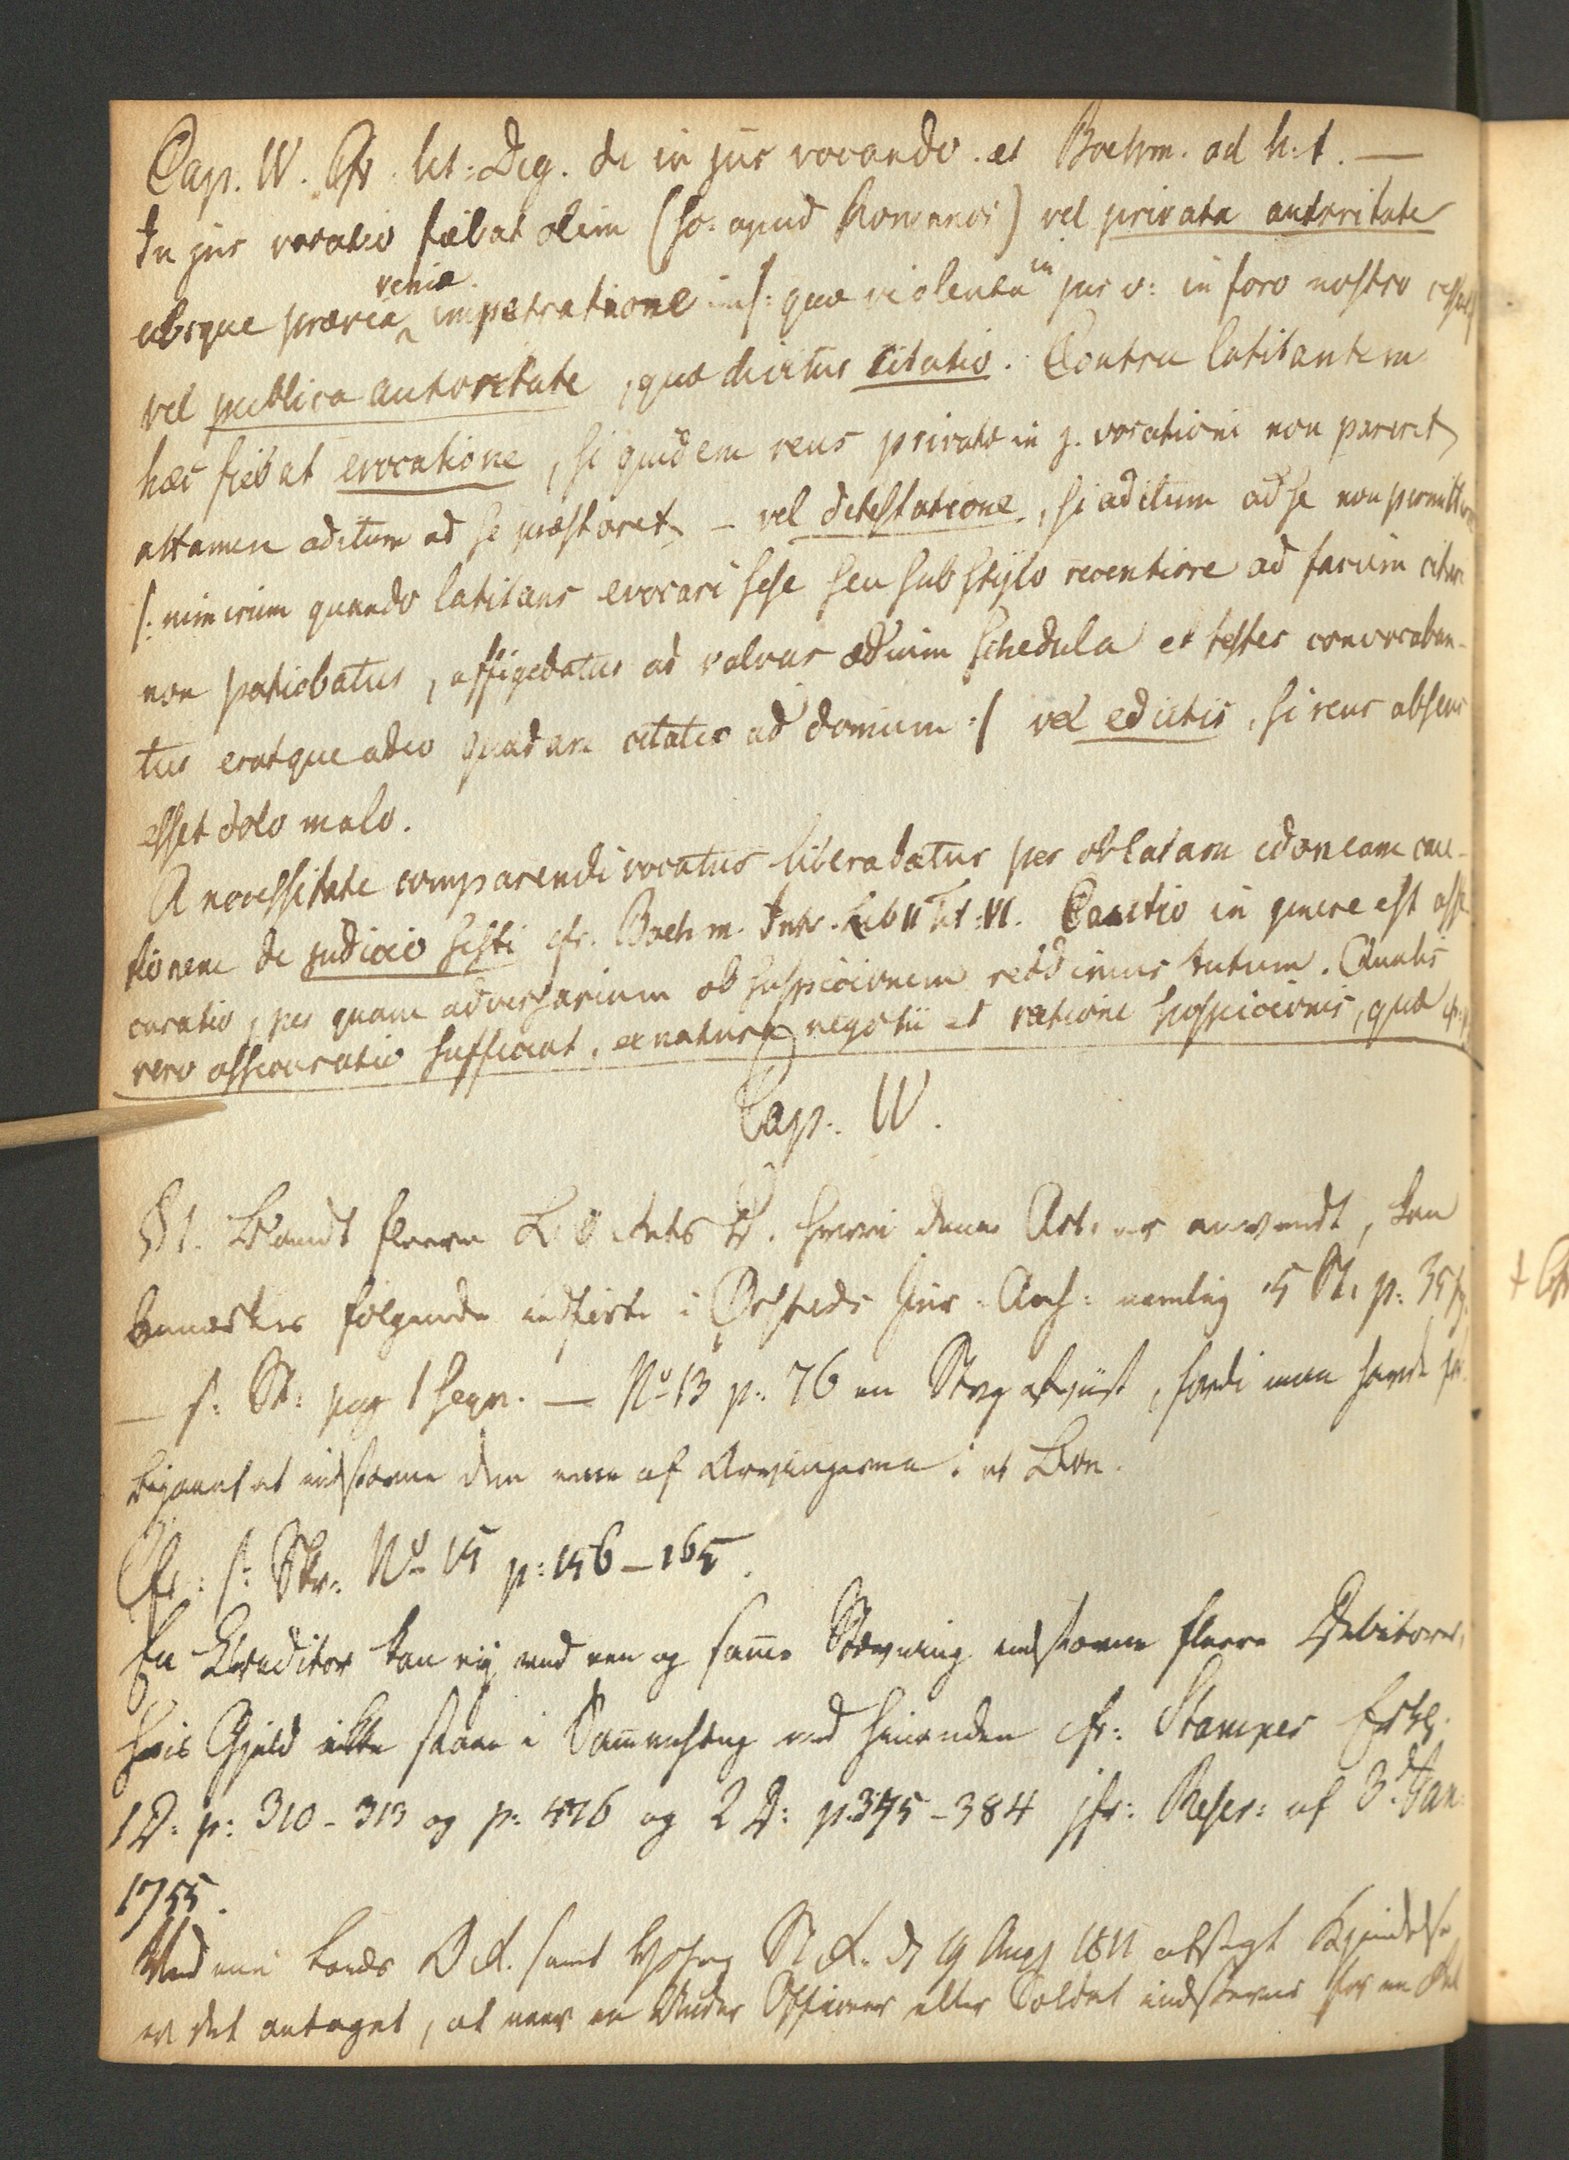 Cap. IV. Cfr. tit: Dig. de in jus vocando. et Boehm. ad h: t. —
In jus vocatio fiebat olim (sc: apud Romanos) vel privata autoritate
absque prævia veniæ impetratione /: quæ violenta in jus v: in foro nostro
vel publica autoritate, quæ dicitur citatio. Contra latitantem
hæc fiebat evocatione, si quidem reus privatæ in j. vocationi non pareret,
attamen aditum ad se præstaret, — vel detestatione, si aditum ad se non permitteret
/: nimirum quando latitans evocari sese seu sub stylo recentiore ad faciem citari
non patiebatur, affigebatur ad valvas ædium schedula et testes convocaban-
tur eratque adeo quædam citatio ad domum :/ vel edictis, si reus absens
esset dolo malo.
A necessitate comparendi vocatus liberabatur per oblatam idoneam cau-
tionem de judicio sisti cfr. Boehm. Intr. Lib II Tit: VI. Cautio in genere est asse-
curatio, per quam adversarium ob suspicionem reddimus tutum. Qualis
vero assecuratio sufficiat, ex natura negotii et ratione suspicionis, quæ
Cap. IV.
§ 1. Blandt flere hvori denne Art. er anvendt, kan
bemærkes følgende indførte i Ørsteds Jur. Arch: nemlig 5 St. p: 35
— s: St: pag 1 seqv. — No 13 p: 76 en Sag afviist, fordi man havde for-
bigaaet at indstævne den ene af Arvingerne i et Boe.
Cfr: s: Skr: No 15 p: 156 – 165.
En Creditor kan ej med een og samme Stævning indstævne flere Debitorer,
hvis Gjeld ikke staae i Sammenhæng med hinanden cfr: Stampes Erkl.
1 D: p: 310 - 313 og p: 476 og 2 D: p. 375 - 384 jfr: Rescr: af 3d Jan:
1755.
Ved en Lands O. R. samt St. R. d 19 Aug 1811 afsagt Kjendelse
er det antaget, at naar en Under Officeer eller Soldat indstævnes for en